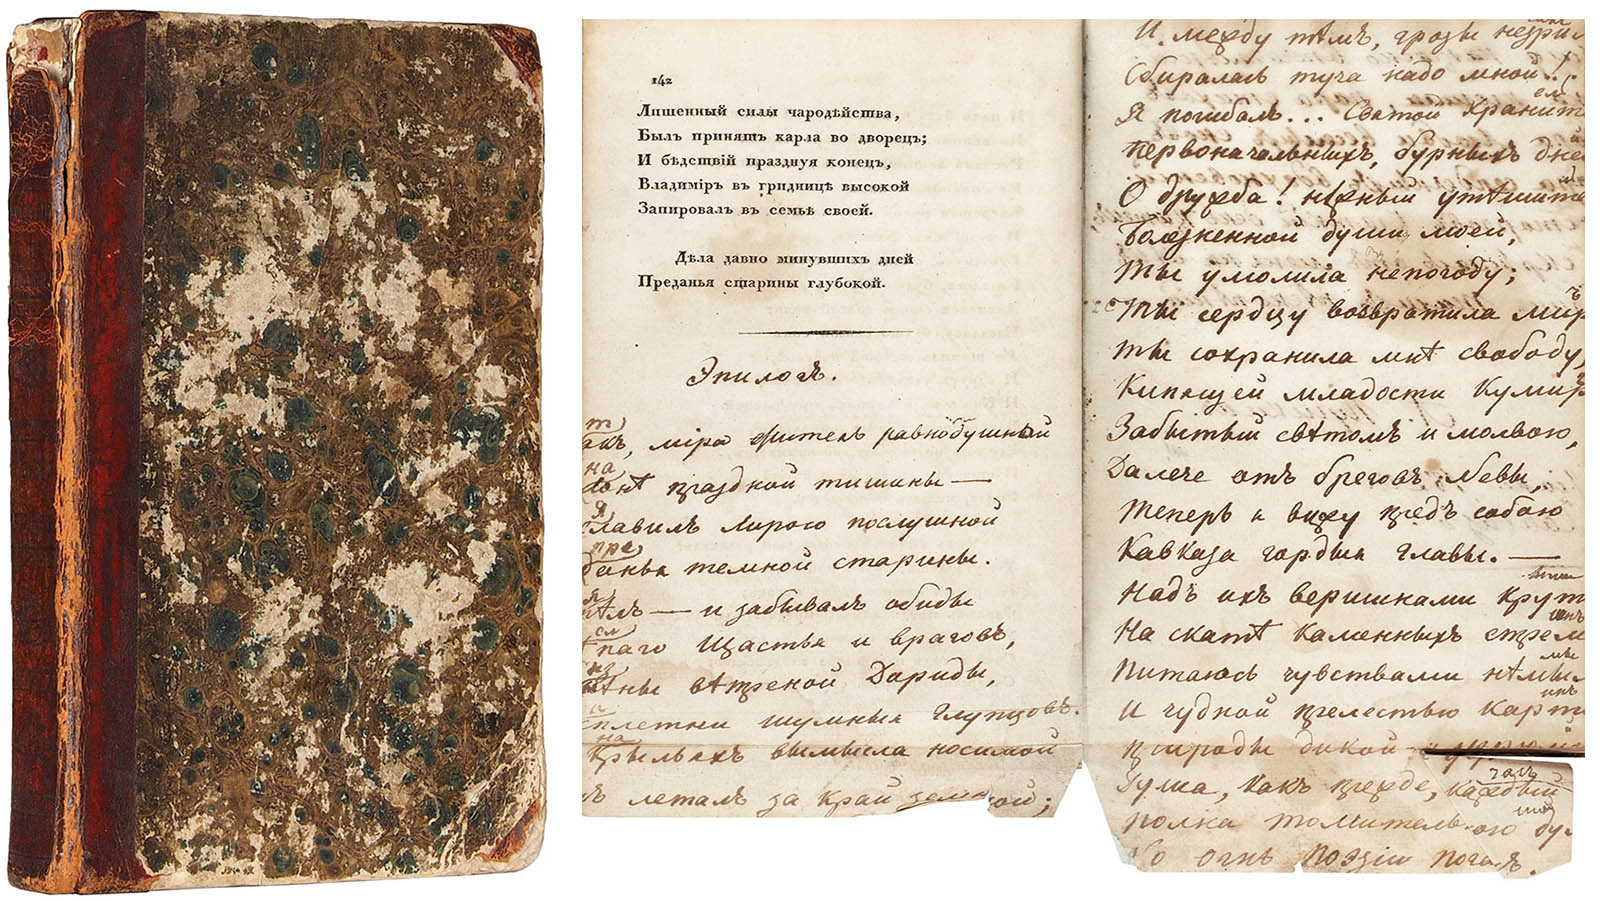 142
Лишенный силы чародѣйства,
Былъ принятъ карла во дворецъ;
И бѣдствій празднуя конецъ,
Владиміръ въ гридницѣ высокой
Запировалъ въ семьѣ своей.
Дѣла давно минувшихъ дней
Преданья старины глубокой.
Эпилогъ.
Такъ, міра житель равнодушный
На лонѣ праздной тишины —
Я славилъ лирою послушной
Преданья темной старины.
Я пѣлъ — и забывалъ обиды
Слѣпаго щастья и враговъ,
Измѣны вѣтреной Дориды,
И сплетни шумныя глупцовъ.
На крыльяхъ вымысла носимой
ъ леталъ за край земной;
И между тѣмъ, грозы незри
Сбиралась туча надо мной!
Я погибалъ... Святой хранитель
Первоначальныхъ, бурныхъ дней
О дружба! нѣжный утѣшитель
Болѣзненной души моей,
Ты умолила непогоду;
Ты сердцу возвратила миръ
Ты сохранила мнѣ свободу,
Кипящей младости кумиръ
Забытый свѣтомъ и молвою,
Далече отъ бреговъ Невы,
Теперь я вижу предъ собою
Кавказа гордыя главы. —
Надъ ихъ вершинами крутыми
На скатѣ каменныхъ стремнинъ
Питаюсь чувствами нѣмыми
И чудной прелестью картинъ
Природы дикой и угрюмой
Душа, какъ прежде, каждый часъ
Полна томительною думой
Но огнь поэзіи погасъ.